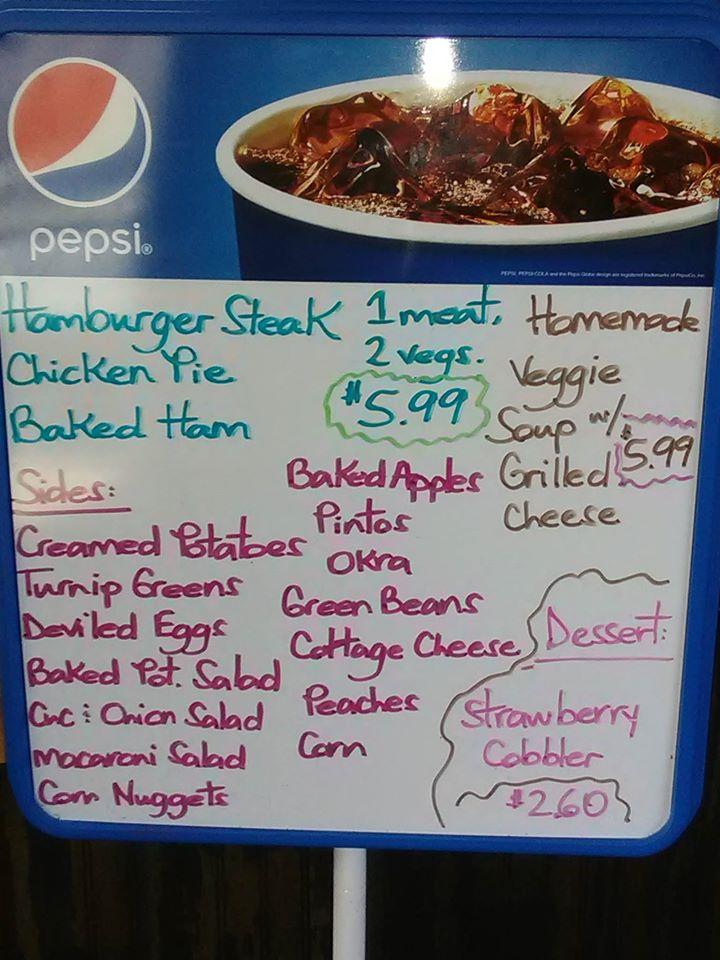 pepsi®
PEPSI, PEPSI-COLA and the Pepsi Globe design are registered trademarks of PepsiCo, Inc.
Hamburger Steak
Chicken Pie
Baked Ham
1 meat,
2 vegs.
$5.99
Homemade
Veggie
Soup w/
Grilled
Cheese
$5.99
Sides:
Creamed Potatoes
Turnip Greens
Deviled Eggs
Baked Pot. Salad
Cuc & Onion Salad
Macaroni Salad
Corn Nuggets
Baked Apples
Pintos
Okra
Green Beans
Cottage Cheese
Peaches
Corn
Dessert:
Strawberry
Cobbler
$2.60